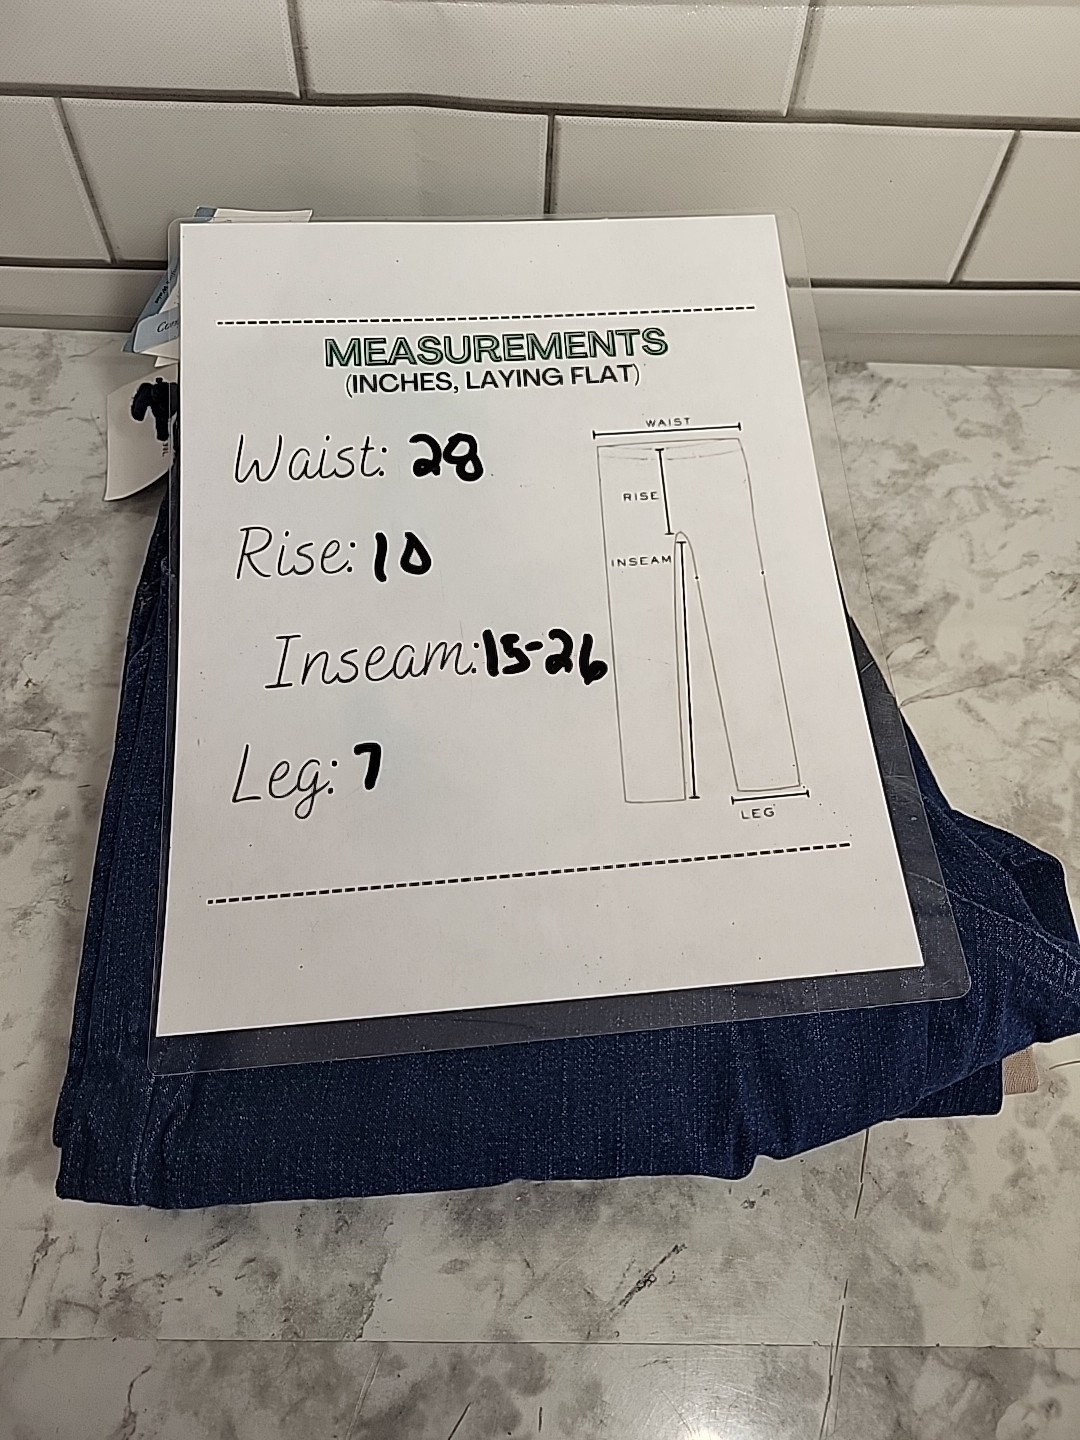 MEASUREMENTS
(INCHES, LAYING FLAT)
Waist: 28
Rise: 10
Inseam: 15-26
Leg: 7
WAIST
RISE
INSEAM
LEG